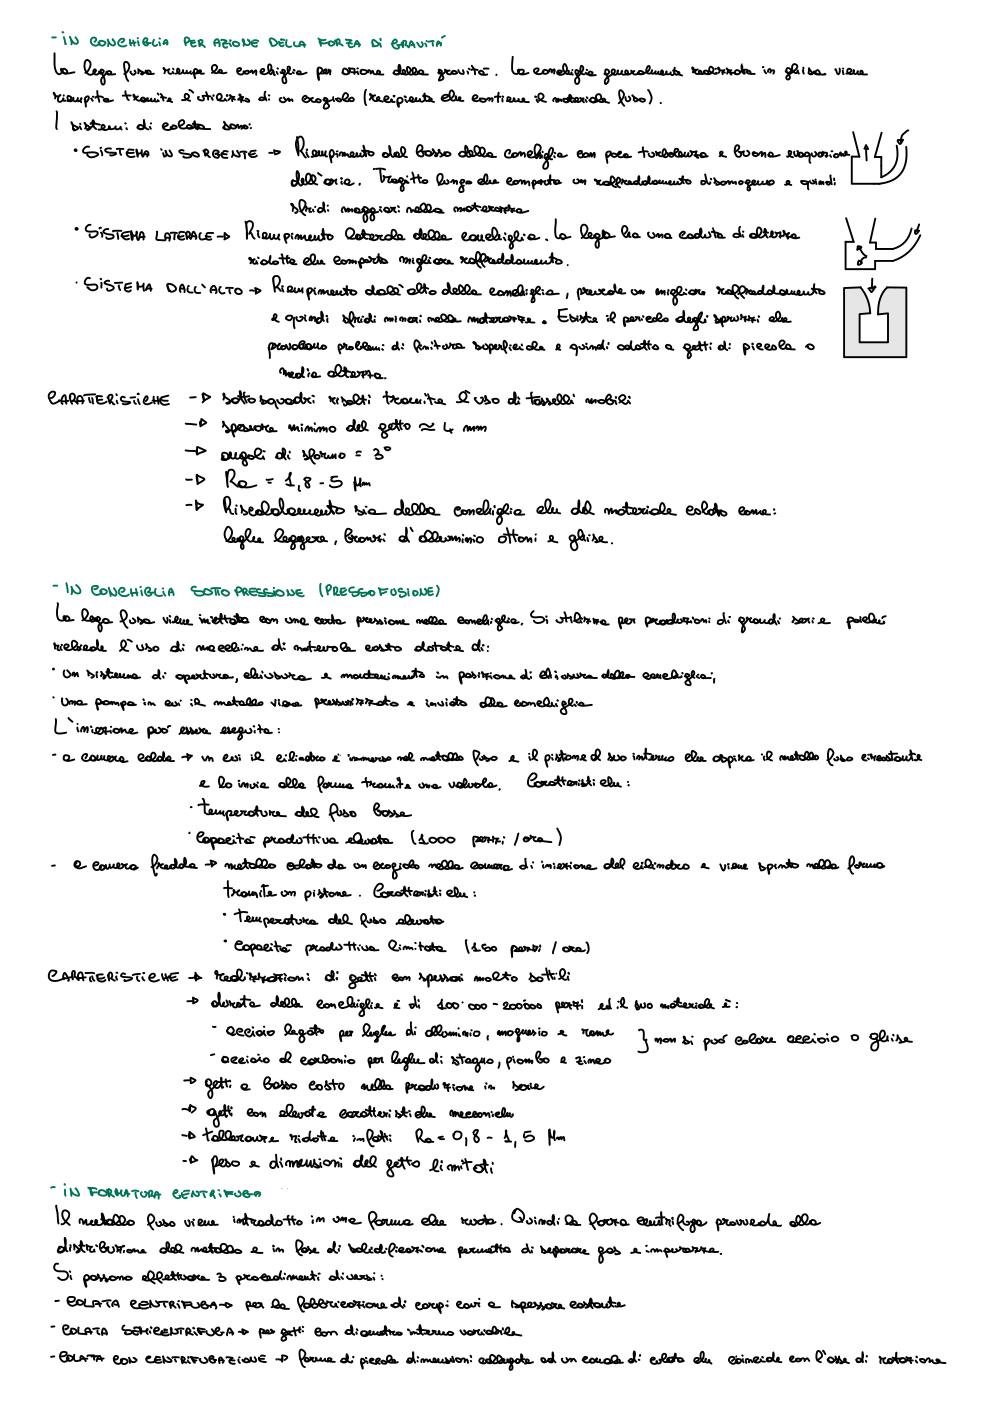 - IN CONCHIGLIA PER AZIONE DELLA FORZA DI GRAVITÀ
La lega fusa riempe la conchiglia per azione della gravità. La conchiglia generalmente realizzata in ghisa viene
riempita tramite l'utilizzo di un crogiolo (recipiente che contiene il materiale fuso).
I sistemi di colata sono:
• SISTEMA IN SORGENTE → Riempimento dal basso della conchiglia con poca turbolenza e buona evaquazione
dell'aria. Tragitto lungo che comporta un raffreddamento disomogeneo e quindi
sfridi maggiori nella materozza
• SISTEMA LATERALE → Riempimento laterale della conchiglia. La lega ha una caduta di altezza
ridotta che comporta migliore raffreddamento.
• SISTEMA DALL'ALTO → Riempimento dall'alto della conchiglia, prevede un migliore raffreddamento
e quindi sfridi minori nelle materozze. Esiste il pericolo degli spruzzi che
provocano problemi di finitura superficiale e quindi adatto a getti di piccola o
media altezza.
CARATTERISTICHE → sottosquadri risolti tramite l'uso di tasselli mobili
→ spessore minimo del getto ≈ 4 mm
→ angoli di sformo = 3°
→ Ra = 1,8 - 5 μm
→ Riscaldamento sia della conchiglia che del materiale colato come:
leghe leggere, bronzi d'alluminio ottoni e ghise.
- IN CONCHIGLIA SOTTO PRESSIONE (PRESSOFUSIONE)
La lega fusa viene iniettata con una certa pressione nella conchiglia. Si utilizza per produzioni di grandi serie poiché
richiede l'uso di macchine di notevole costo dotate di:
• Un sistema di apertura, chiusura e mantenimento in posizione di chiusura della conchiglia;
• Una pompa in cui il metallo viene pressurizzato e inviato alla conchiglia
L'iniezione può essere eseguita:
- a camera calda → in cui il cilindro è immerso nel metallo fuso e il pistone al suo interno che aspira il metallo fuso circostante
e lo invia alla forma tramite una valvola. Caratteristiche:
• temperature del fuso basse
• Capacità produttiva elevata (1000 pezzi /ora)
- a camera fredda → metallo colato da un crogiolo nella camera di iniezione del cilindro e viene spinto nella forma
tramite un pistone. Caratteristiche:
• Temperatura del fuso elevata
• Capacità produttiva limitata (150 pezzi / ora)
CARATTERISTICHE → realizzazioni di getti con spessori molto sottili
→ durata della conchiglia è di 100'000 - 200'000 pezzi ed il suo materiale è:
- acciaio legato per leghe di alluminio, magnesio e rame
- acciaio al carbonio per leghe di stagno, piombo e zinco
} non si può colare acciaio o ghisa
→ getti a basso costo nella produzione in serie
→ getti con elevate caratteristiche meccaniche
→ tolleranze ridotte infatti Ra = 0,8 - 1,5 μm
→ peso e dimensioni del getto limitati
- IN FORMATURA CENTRIFUGA
Il metallo fuso viene introdotto in una forma che ruota. Quindi la forza centrifuga provvede alla
distribuzione del metallo e in fase di solidificazione permette di separare gas e impurezze.
Si possono effettuare 3 procedimenti diversi:
- COLATA CENTRIFUGA → per la fabbricazione di corpi cavi a spessore costante
- COLATA SEMICENTRIFUGA → per getti con diametro interno variabile
- COLATA CON CENTRIFUGAZIONE → forme di piccole dimensioni collegate ad un canale di colata che coincide con l'asse di rotazione